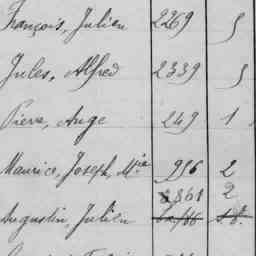 François, Julien 2269 5
Jules, Alfred 2339 5
Pierre, Ange 249 1
Maurice, Joseph, Mie 956 2
861 2
Augustin, Julien